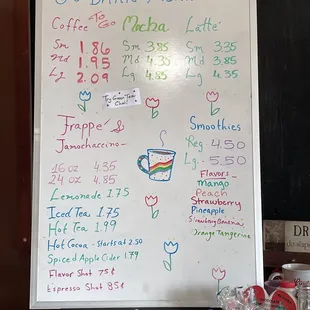 Coffee To Go
Sm 1.86
Md 1.95
Lg 2.09
Mocha
Sm 3.85
Md 4.35
Lg 4.85
Latte
Sm 3.35
Md 3.85
Lg 4.35
Try Green Tea
Chai!
Frappé &
Jamochaccino
16 oz 4.35
24 oz 4.85
Lemonade 1.75
Iced Tea 1.75
Hot Tea 1.99
Hot Cocoa - Starts at 2.50
Spiced Apple Cider 1.79
Flavor Shot 75¢
Espresso Shot 85¢
Smoothies
Reg 4.50
Lg. 5.50
Flavors
Mango
Peach
Strawberry
Pineapple
Strawberry Banana
Orange Tangerine
DR